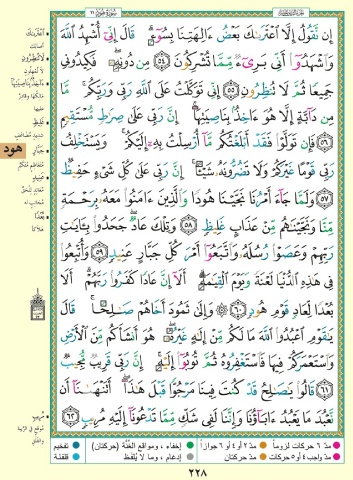 سورة هود ١١
إِن نَّقُولُ إِلَّا ٱعْتَرَىٰكَ بَعْضُ ءَالِهَتِنَا بِسُوٓءٍ ۗ قَالَ إِنِّىٓ أُشْهِدُ ٱللَّهَ
وَٱشْهَدُوٓا۟ أَنِّى بَرِىٓءٌ مِّمَّا تُشْرِكُونَ ٥٤ مِن دُونِهِۦ ۖ فَكِيدُونِى
جَمِيعًا ثُمَّ لَا تُنظِرُونِ ٥٥ إِنِّى تَوَكَّلْتُ عَلَى ٱللَّهِ رَبِّى وَرَبِّكُم ۚ مَّا
مِن دَآبَّةٍ إِلَّا هُوَ ءَاخِذٌۢ بِنَاصِيَتِهَآ ۚ إِنَّ رَبِّى عَلَىٰ صِرَٰطٍ مُّسْتَقِيمٍ
٥٦ فَإِن تَوَلَّوْا۟ فَقَدْ أَبْلَغْتُكُم مَّآ أُرْسِلْتُ بِهِۦٓ إِلَيْكُمْ ۚ وَيَسْتَخْلِفُ
رَبِّى قَوْمًا غَيْرَكُمْ وَلَا تَضُرُّونَهُۥ شَيْـًٔا ۚ إِنَّ رَبِّى عَلَىٰ كُلِّ شَىْءٍ حَفِيظٌ
٥٧ وَلَمَّا جَآءَ أَمْرُنَا نَجَّيْنَا هُودًا وَٱلَّذِينَ ءَامَنُوا۟ مَعَهُۥ بِرَحْمَةٍ
مِّنَّا وَنَجَّيْنَٰهُم مِّنْ عَذَابٍ غَلِيظٍ ٥٨ وَتِلْكَ عَادٌ ۖ جَحَدُوا۟ بِـَٔايَٰتِ
رَبِّهِمْ وَعَصَوْا۟ رُسُلَهُۥ وَٱتَّبَعُوٓا۟ أَمْرَ كُلِّ جَبَّارٍ عَنِيدٍ ٥٩ وَأُتْبِعُوا۟
فِى هَٰذِهِ ٱلدُّنْيَا لَعْنَةً وَيَوْمَ ٱلْقِيَٰمَةِ ۗ أَلَآ إِنَّ عَادًا كَفَرُوا۟ رَبَّهُمْ ۗ أَلَا
بُعْدًا لِّعَادٍ قَوْمِ هُودٍ ٦٠ وَإِلَىٰ ثَمُودَ أَخَاهُمْ صَٰلِحًا ۚ قَالَ
يَٰقَوْمِ ٱعْبُدُوا۟ ٱللَّهَ مَا لَكُم مِّنْ إِلَٰهٍ غَيْرُهُۥ ۖ هُوَ أَنشَأَكُم مِّنَ ٱلْأَرْضِ
وَٱسْتَعْمَرَكُمْ فِيهَا فَٱسْتَغْفِرُوهُ ثُمَّ تُوبُوٓا۟ إِلَيْهِ ۚ إِنَّ رَبِّى قَرِيبٌ مُّجِيبٌ
٦١ قَالُوا۟ يَٰصَٰلِحُ قَدْ كُنتَ فِينَا مَرْجُوًّا قَبْلَ هَٰذَآ ۖ أَتَنْهَىٰنَآ أَن
نَّعْبُدَ مَا يَعْبُدُ ءَابَآؤُنَا وَإِنَّنَا لَفِى شَكٍّ مِّمَّا تَدْعُونَآ إِلَيْهِ مُرِيبٍ ٦٢
هود
مدّ ٦ حركات لزوماً
مدّ ٢ أو ٤ أو ٦ جوازاً
إخفاء، ومواقع الغُنَّة (حركتان)
تفخيم
مدّ واجب ٤ أو ٥ حركات
مدّ حركتان
إدغام، وما لا يُلفظ
قلقلة
٢٢٨